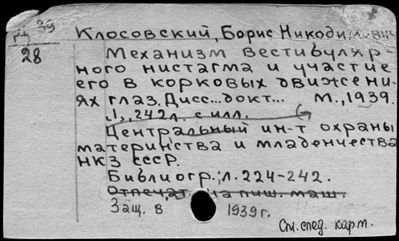 Клосовский, Борис Никодимович
28
Механизм вестибуляр-
ного нистагма и участие
его в корковых движени-
ях глаз. Дисс... докт... М., 1939.
1, 242 л. с илл.
Центральный ин-т охраны
материнства и младенчества
НКЗ СССР.
Библиогр.; л. 224-242.
Отпечат. на пиш. маш.
Защ. в 1939 г.
См. след. карт.